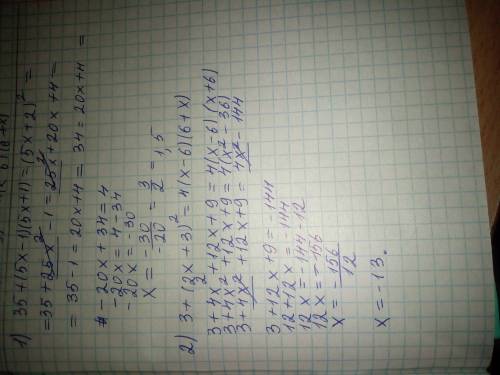 1) 35+(5x-1)(5x+1)=(5x+2)²=
=35+25x²-1=25x²+20x+4=
=35-1=20x+4=34=20x+4=
-20x+34=4
-20x=4-34
-20x=-30
x=-30/-20=3/2=1,5
2) 3+(2x+3)²=4(x-6)(6+x)
3+4x²+12x+9=4(x-6)(x+6)
3+4x²+12x+9=4(x²-36)
3+4x²+12x+9=4x²-144
3+12x+9=-144
12+12x=-144
12x=-144-12
12x=-156
x=-156/12
x=-13.